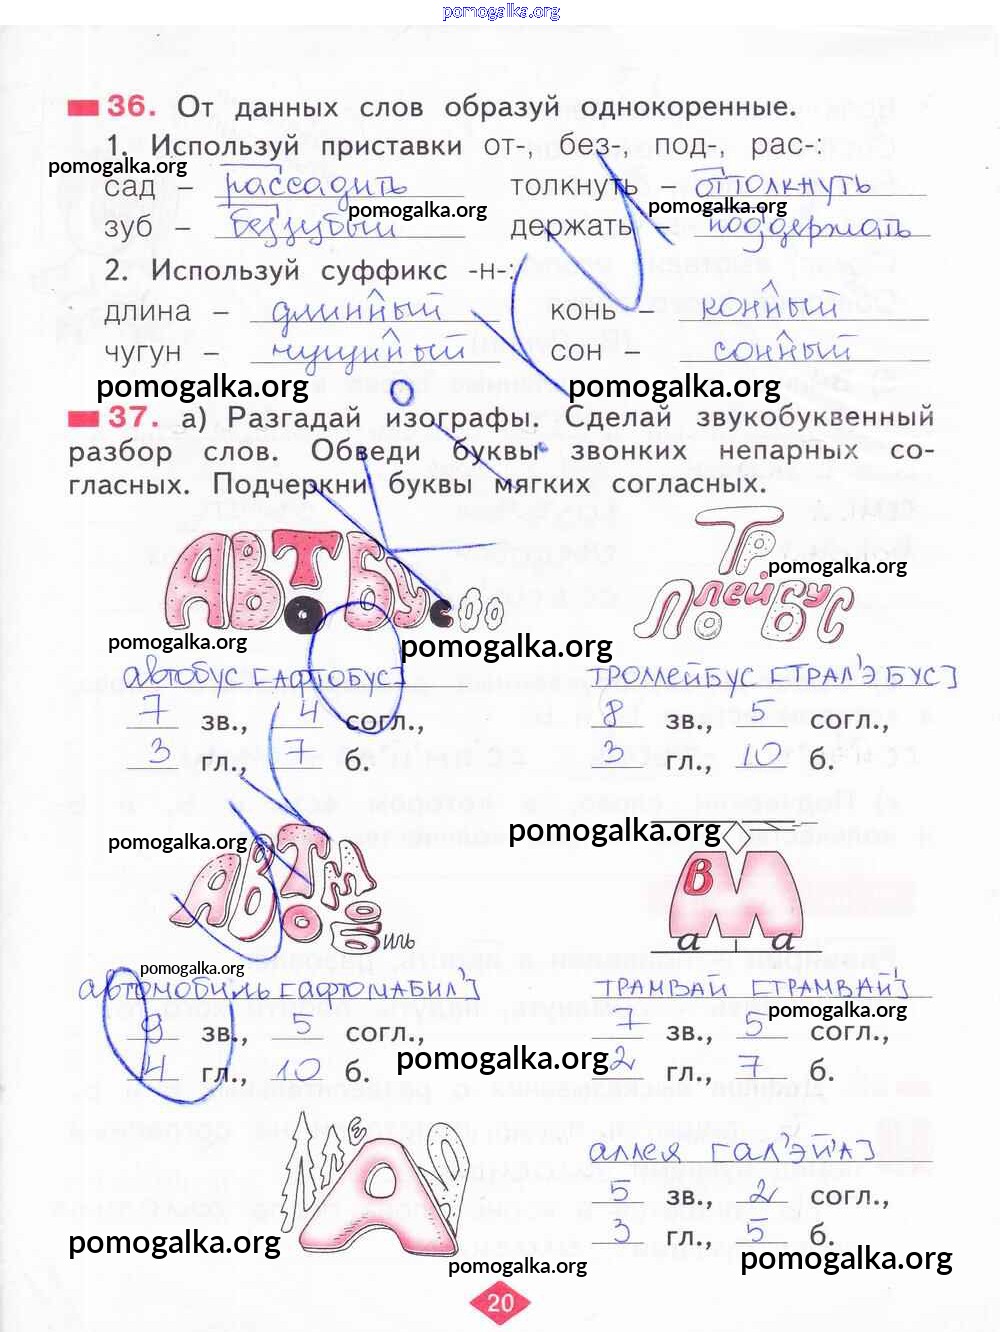 pomogalka.org
36. От данных слов образуй однокоренные.
1. Используй приставки от-, без-, под-, рас-:
pomogalka.org
сад – рассадить толкнуть – оттолкнуть
pomogalka.org pomogalka.org
зуб – беззубый держать – поддержать
2. Используй суффикс -н-:
длина – длинный конь – конный
чугун – чугунный сон – сонный
pomogalka.org pomogalka.org
37. а) Разгадай изографы. Сделай звукобуквенный
разбор слов. Обведи буквы звонких непарных со-
гласных. Подчеркни буквы мягких согласных.
АВТОБУС ТРОЛЛЕЙБУС
pomogalka.org
pomogalka.org pomogalka.org
автобус [АФТОБУС] ТРОЛЛЕЙБУС [ТРАЛ'ЭБУС]
7 зв., 4 согл., 8 зв., 5 согл.,
3 гл., 7 б. 3 гл., 10 б.
pomogalka.org
pomogalka.org
АВТОМОБиль ТРамВай
pomogalka.org
автомобиль [АФТОМАБИЛ'] ТРАМВАЙ [ТРАМВАЙ']
pomogalka.org
9 зв., 5 согл., 7 зв., 5 согл.,
pomogalka.org
4 гл., 10 б. 2 гл., 7 б.
аллея [АЛ'ЭЙ'А]
5 зв., 2 согл.,
3 гл., 5 б.
pomogalka.org pomogalka.org
pomogalka.org
20